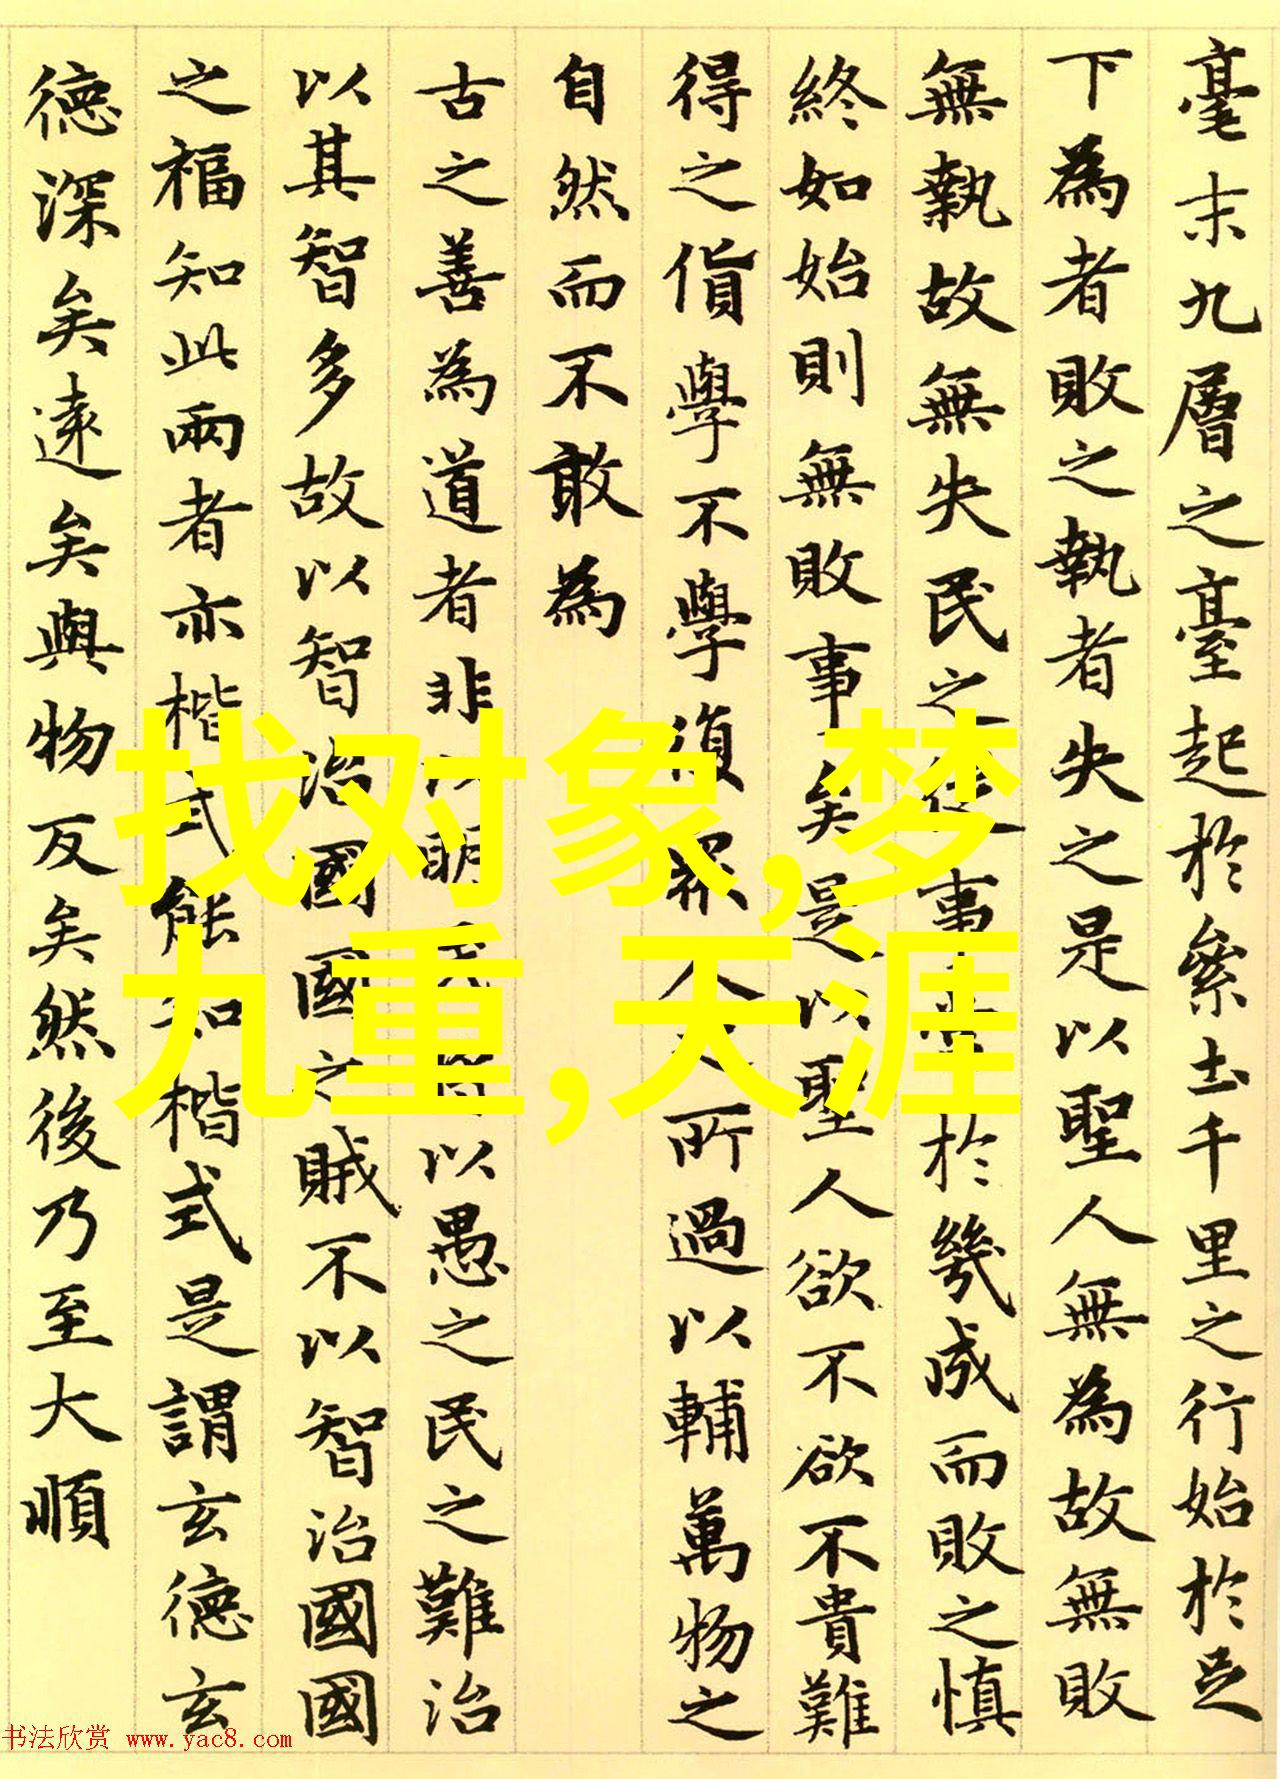 毫末九層之臺起於絫土千里之行始於足
下為者敗之執者失之是以聖人無為故無敗
無執故無失民之從事常於幾成而敗之慎
終如始則無敗事矣是以聖人欲不欲不貴難
得之貨學不學復眾人之所過以輔萬物之
自然而不敢為
古之善為道者非以明民將以愚之民之難治
以其智多故以智治國國之賊不以智治國國
之福知此兩者亦楷式能知楷式是謂玄德玄
德深矣遠矣與物反矣然後乃至大順
找对象,梦
九重,天涯
书法欣赏 www.yac8.com